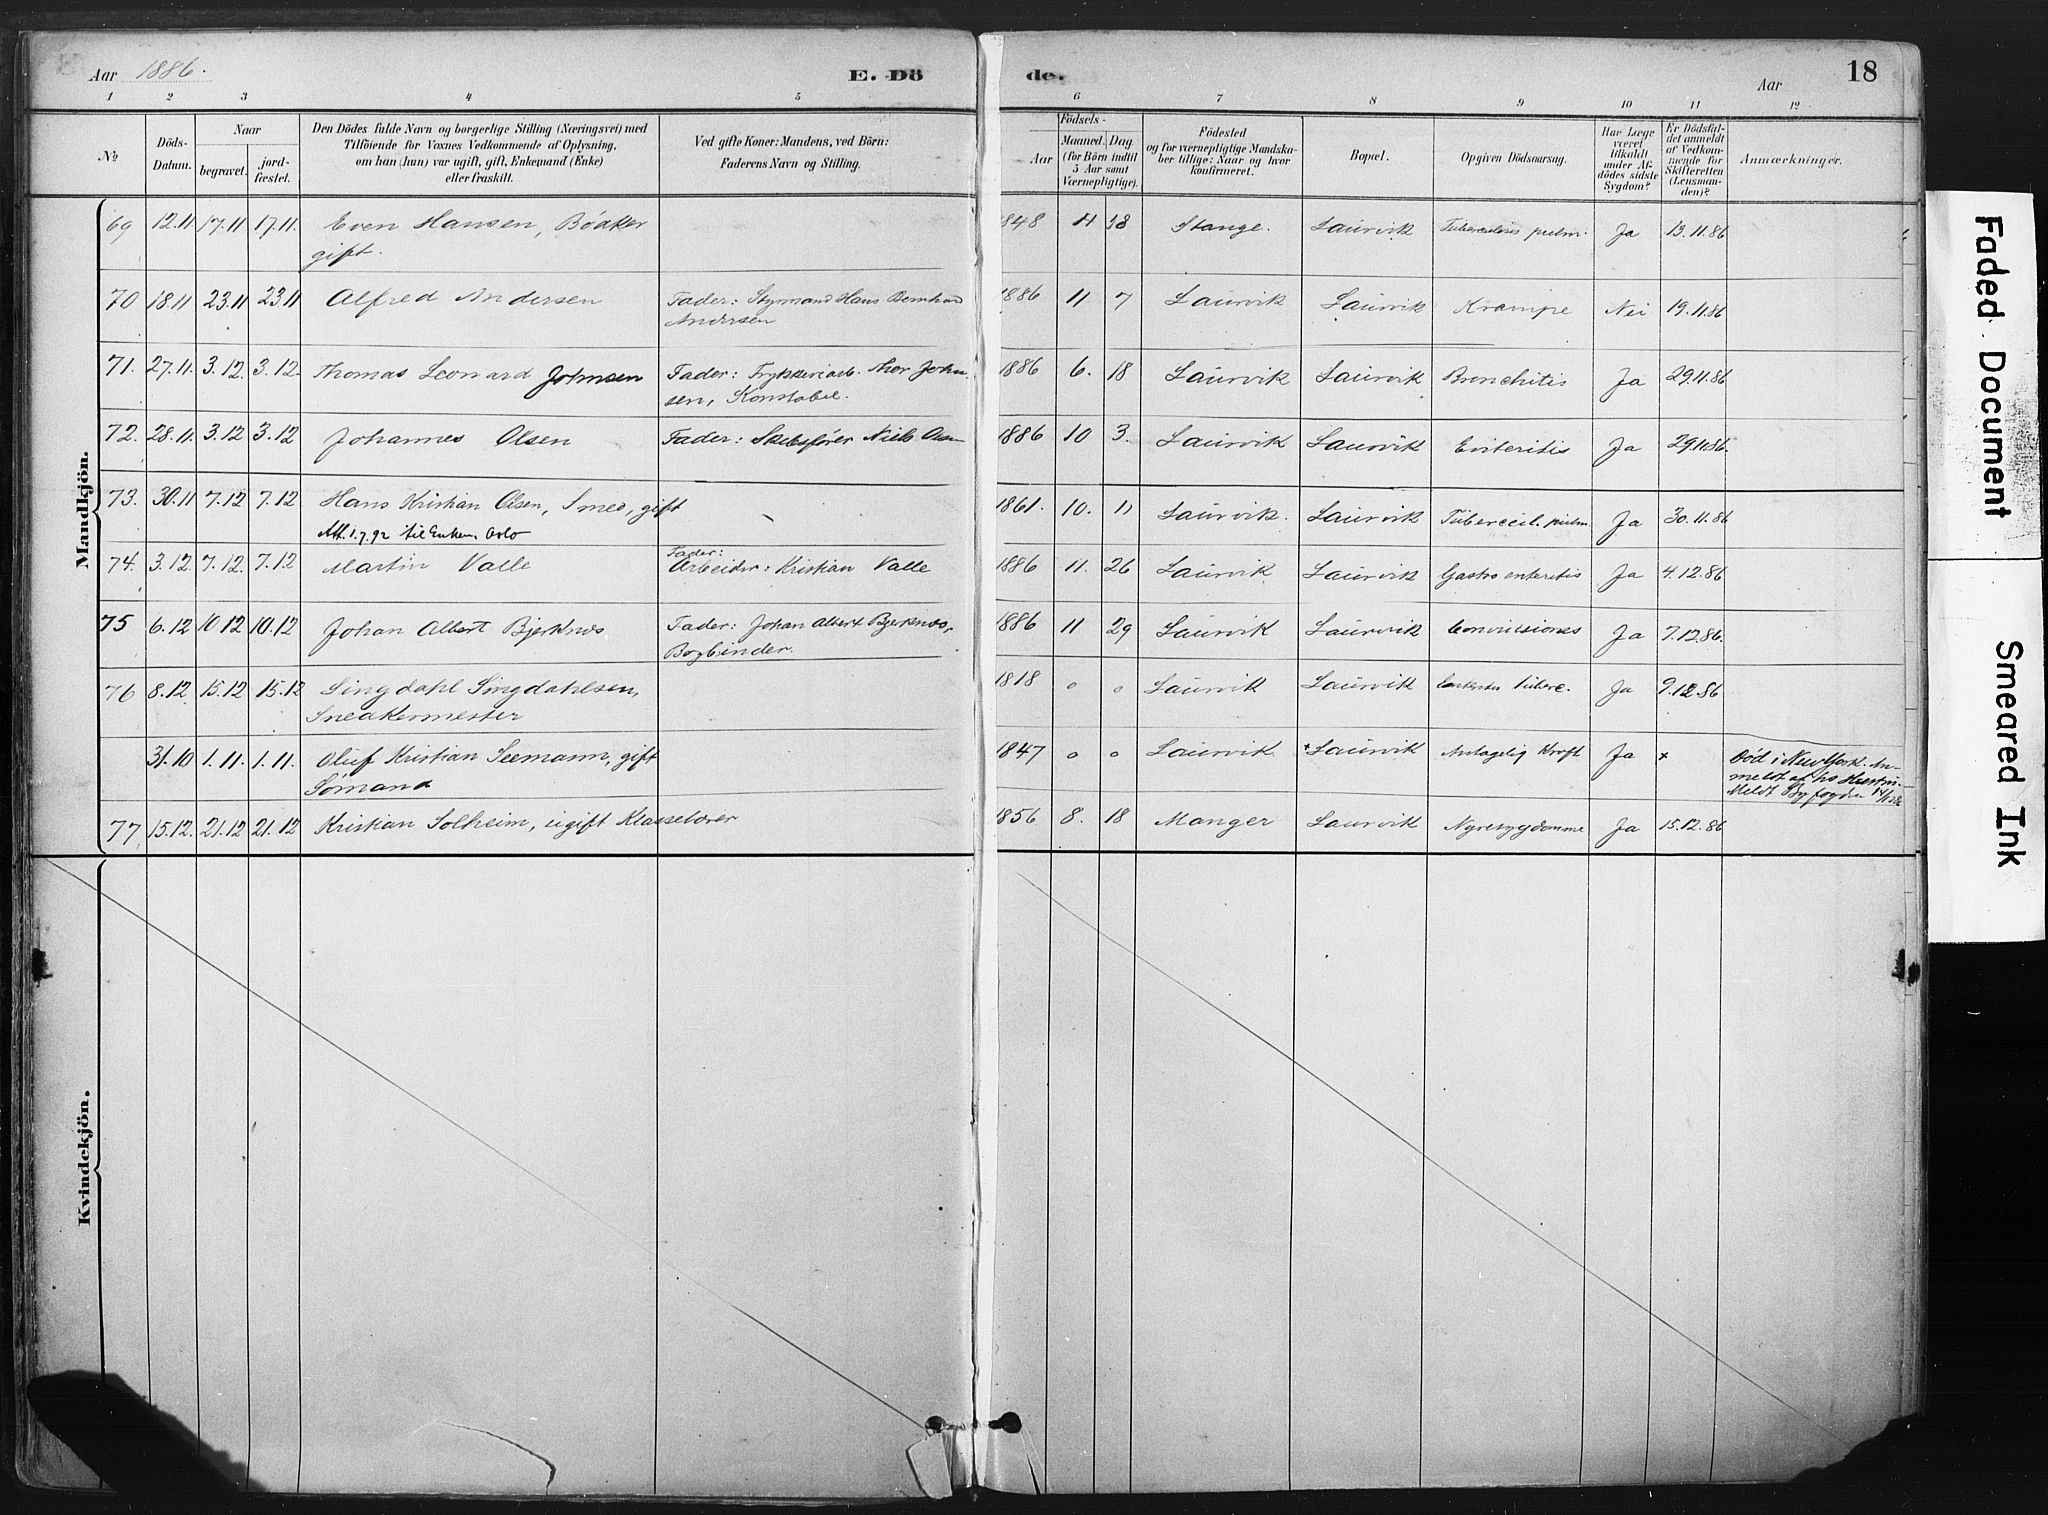 Aar 1886.
E. Dö
de.
Aar
18
1 2 3 4 5 6 7 8 9 10 11 12
No
Döds-
Datum.
Naar
begravet.
jord-
fæstet.
Den Dödes fulde Navn og borgerlige Stilling (Næringsvei) med
Tilföiende for Voxnes Vedkommende af Oplysning,
om han (hun) var ugift, gift, Enkemand (Enke)
eller fraskilt.
Ved gifte Koner: Mandens, ved Börn:
Faderens Navn og Stilling.
Födsels-
Aar
Maaned. Dag.
(for Börn indtil
5 Aar samt
Værnepligtige).
Födested
og for værnepligtige Mandska-
ber tillige: Naar og hvor
konfirmeret.
Bopæl.
Opgiven Dödsaarsag.
Har Læge
været
tilkaldt
under Af-
dødes sidste
Sygdom?
Er Dödsfal-
det anmeldt
af Vedkom-
mende for
Skifteretten
(Lensman-
den)?
Anmærkninger.
Mandkjön.
69 12.11 17.11 17.11. Even Hansen, Bødker 1848 18 Stange. Laurvik Tuberculosis pulm. Ja 13.11.86
gift.
70 18.11 23.11 23.11 Alfred Andersen Fader: Styrmand Hans Bernhard 1886 11 7 Laurvik Laurvik Krampe Nei 19.11.86
Andersen
71. 27.11. 3.12. 3.12. Thomas Leonard Johnsen Fader: Trykkeriarb. Thor John- 1886 6. 18 Laurvik Laurvik Bronchitis Ja 29.11.86
sen, Konstabel.
72. 28.11. 3.12 3.12 Johannes Olsen Fader: Skibsfører Niels Olsen 1886 10 3. Laurvik Laurvik Enteritis Ja 29.11.86.
73. 30.11 7.12 7.12 Hans Kristian Olsen, Smed, gift 1861. 10. 11 Laurvik. Laurvik Tubercul. pulm. Ja 30.11.86
Att. 1.7.92 til Enken. Oslo
74. 3.12. 7.12. 7.12 Martin Valle Fader: 1886 11. 26 Laurvik Laurvik Gastro enteritis Ja 4.12.86
Arbeider: Kristian Valle
75 6.12 10 12 10.12 Johan Albert Bjerknæs Fader: Johan Albert Bjerknæs, 1886 11 29 Laurvik Laurvik Convulsiones Ja 7.12.86.
Bogbinder.
76 8.12 15.12 15.12 Lingdahl Lingdahlsen, 1818 o o Laurvik Laurvik Enteritis Ja 9.12.86
Snedkermester
31.10 1.11. 1.11. Oluf Kristian Seemann, gift 1847 o o Laurvik + Laurvik Antagelig Kræft Ja + Død i New York. An-
Sømand meldt af
Meldt Byfogden
77 15.12. 21.12 21.12 Kristian Solheim, ugift Klasselærer 1856 8. 18 Manger Laurvik Nyresygdomme Ja 15.12.86
Kvindekjön.
Faded Document
Smeared Ink